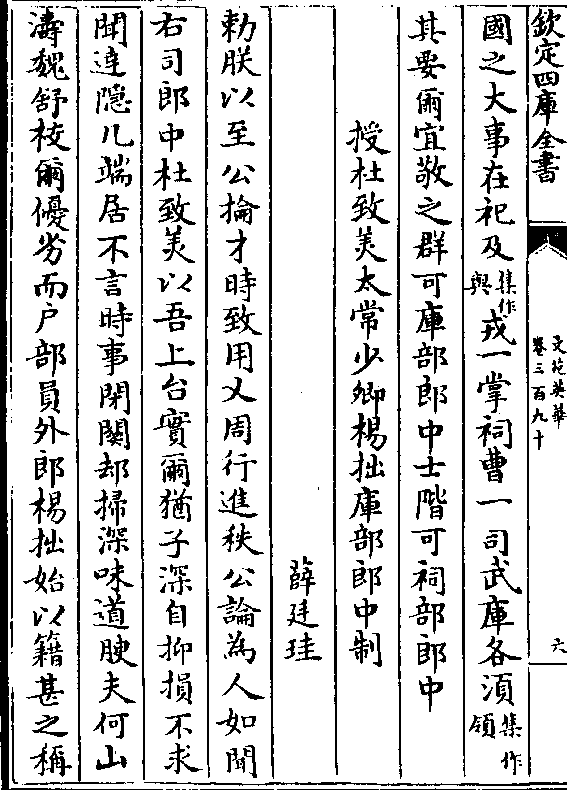 欽定四庫全書
文苑英華
卷三百九十
六
國之大事在祀及集作與戎一掌祠曹一司武庫各湏集作領
其要爾宜敬之群可庫部郎中士階可祠部郎中
授杜致美太常少卿楊拙庫部郎中制
薛廷珪
勅朕以至公掄才時致用乂周行進秩公論為人如聞
右司郎中杜致美以吾上台實爾猶子深自抑損不求
聞達隱几端居不言時事閉關却掃深味道腴夫何山
濤魏舒校爾優劣而户部員外郎楊拙始以籍甚之稱